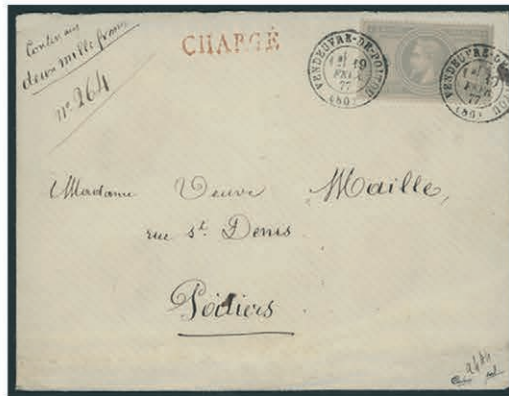 Contenant
deux mille francs
n° 264
CHARGÉ
VENDEUVRE-DE-POITOU
19
FEVR.
77
(80)
VENDEUVRE-DE-POITOU
19
FEVR.
77
(80)
Madame Veuve Maille,
rue St. Denis
Poitiers